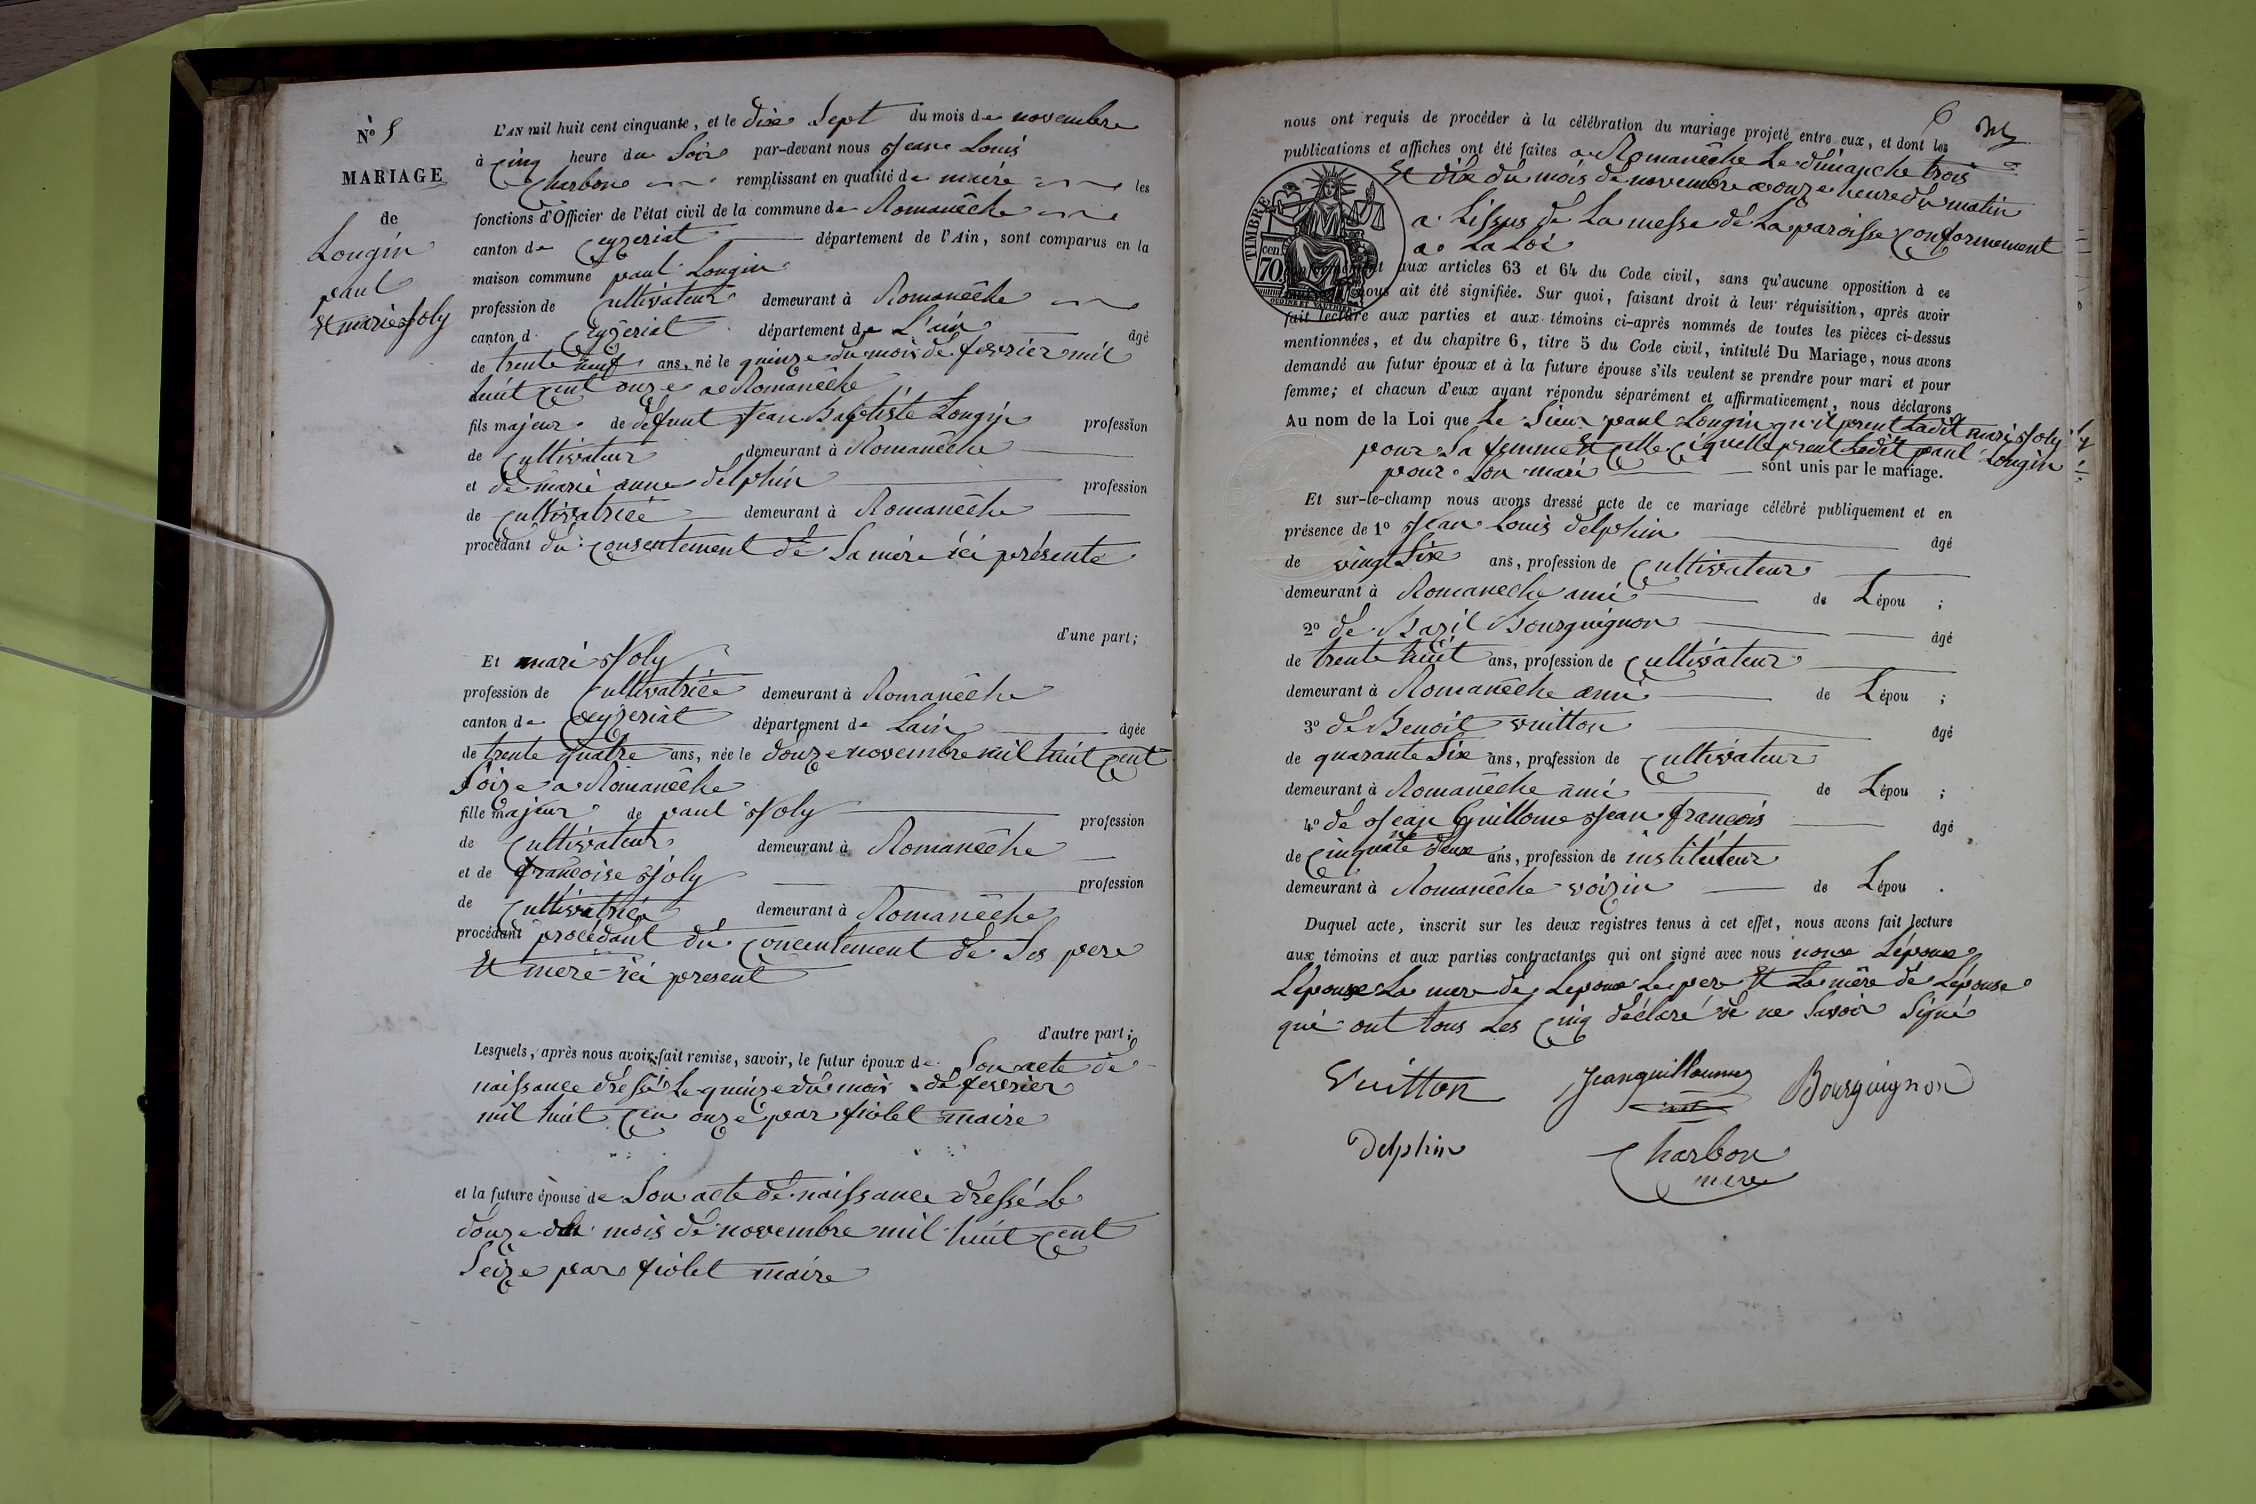 N° 5
MARIAGE
de
Longin
paul
Et marie Joly
L'AN mil huit cent cinquante, et le dix Sept du mois de novembre
à Cinq heure du Soir par-devant nous Jean Louis
Charbon remplissant en qualité de maire les
fonctions d'Officier de l'état civil de la commune de Romanêche
canton de Ceyzeriat département de l'Ain, sont comparus en la
maison commune paul Longin
profession de Cultivateur demeurant à Romanêche
canton d Ceyzeriat département de L'ain âgé
de trente neuf ans, né le quinze du mois de fevrier mil
huit Cent onze a Romanêche
fils majeur de défunt Jean Baptiste Longin profession
de Cultivateur demeurant à Romanêche
et de marie anne delphin profession
de Cultivatrice demeurant à Romanêche
procédant du Consentement de Sa mére ici présente
d'une part;
Et mari Joly
profession de Cultivatrice demeurant à Romanêche
canton de Ceyzeriat département de Lain âgée
de trente quatre ans, née le douze novembre mil huit Cent
Seize a Romanêche
fille majeur de paul Joly profession
de Cultivateur demeurant à Romanêche
et de francoise Joly profession
de Cultivatrice demeurant à Romanêche
procédant procédant du Concentement de Ses pere
Et mere ici present
d'autre part;
Lesquels, après nous avoir fait remise, savoir, le futur époux de Son acte de
naissance dressé Le quinze du mois de fevrier
mil huit Cen onze par fiolet maire
et la future épouse de Son acte de naissance dressé Le
douze du mois de novembre mil huit Cent
Seize par fiolet maire
6
nous ont requis de procéder à la célébration du mariage projeté entre eux, et dont les
publications et affiches ont été faites a Romanêche Le dimanche trois
Et dix du mois de novembre a onze heure du matin
a Lissus de La messe de La paroisse Conformement
a La Loi
TIMBRE
70 cen
aux articles 63 et 64 du Code civil, sans qu'aucune opposition à ce
nous ait été signifiée. Sur quoi, faisant droit à leur réquisition, après avoir
fait lecture aux parties et aux témoins ci-après nommés de toutes les pièces ci-dessus
mentionnées, et du chapitre 6, titre 5 du Code civil, intitulé Du Mariage, nous avons
demandé au futur époux et à la future épouse s'ils veulent se prendre pour mari et pour
femme; et chacun d'eux ayant répondu séparément et affirmativement, nous déclarons
Au nom de la Loi que Le Sieur paul Longin qu'il prent Ladit mari Joly
pour Sa femme Et Celle Ci quelle prent Ledit paul Longin
pour Son mari sont unis par le mariage.
Et sur-le-champ nous avons dressé acte de ce mariage célébré publiquement et en
présence de 1° Jean Louis delphin âgé
de vingt Six ans, profession de Cultivateur
demeurant à Romanêche ami de Lépou ;
2° de Bazil Bourguignon âgé
de trente huit ans, profession de Cultivateur
demeurant à Romanêche ami de Lépou ;
3° de Benoit vuitton âgé
de quarante Six ans, profession de Cultivateur
demeurant à Romanêche ami de Lépou ;
4° de Jean Guillome Jean francois âgé
de Cinquante deux ans, profession de instituteur
demeurant à Romanêche voizin de Lépou .
Duquel acte, inscrit sur les deux registres tenus à cet effet, nous avons fait lecture
aux témoins et aux parties contractantes qui ont signé avec nous non Lépoux
Lépouse La mere de Lepoux Le pere Et La mére de Lépouse
qui ont tous Les Cinq déclaré de ne Savoir Signé
Vuitton Jeanguillaume Bourguignon
inst
Delphin Charbon
mere